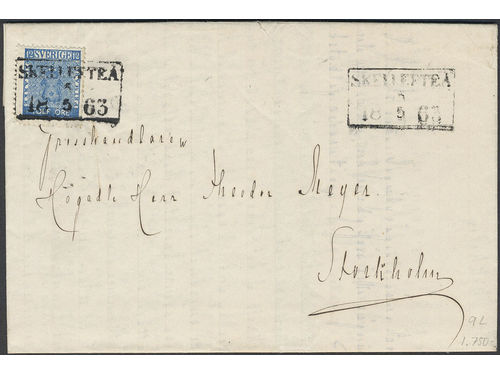 12 SVERIGE 12
TOLF ÖRE
SKELLEFTEÅ
5
18 63
SKELLEFTEÅ
5
18 63
Grosshandlaren
Högädle Herr Theodor Meyer.
Stockholm
9L
1.750:-